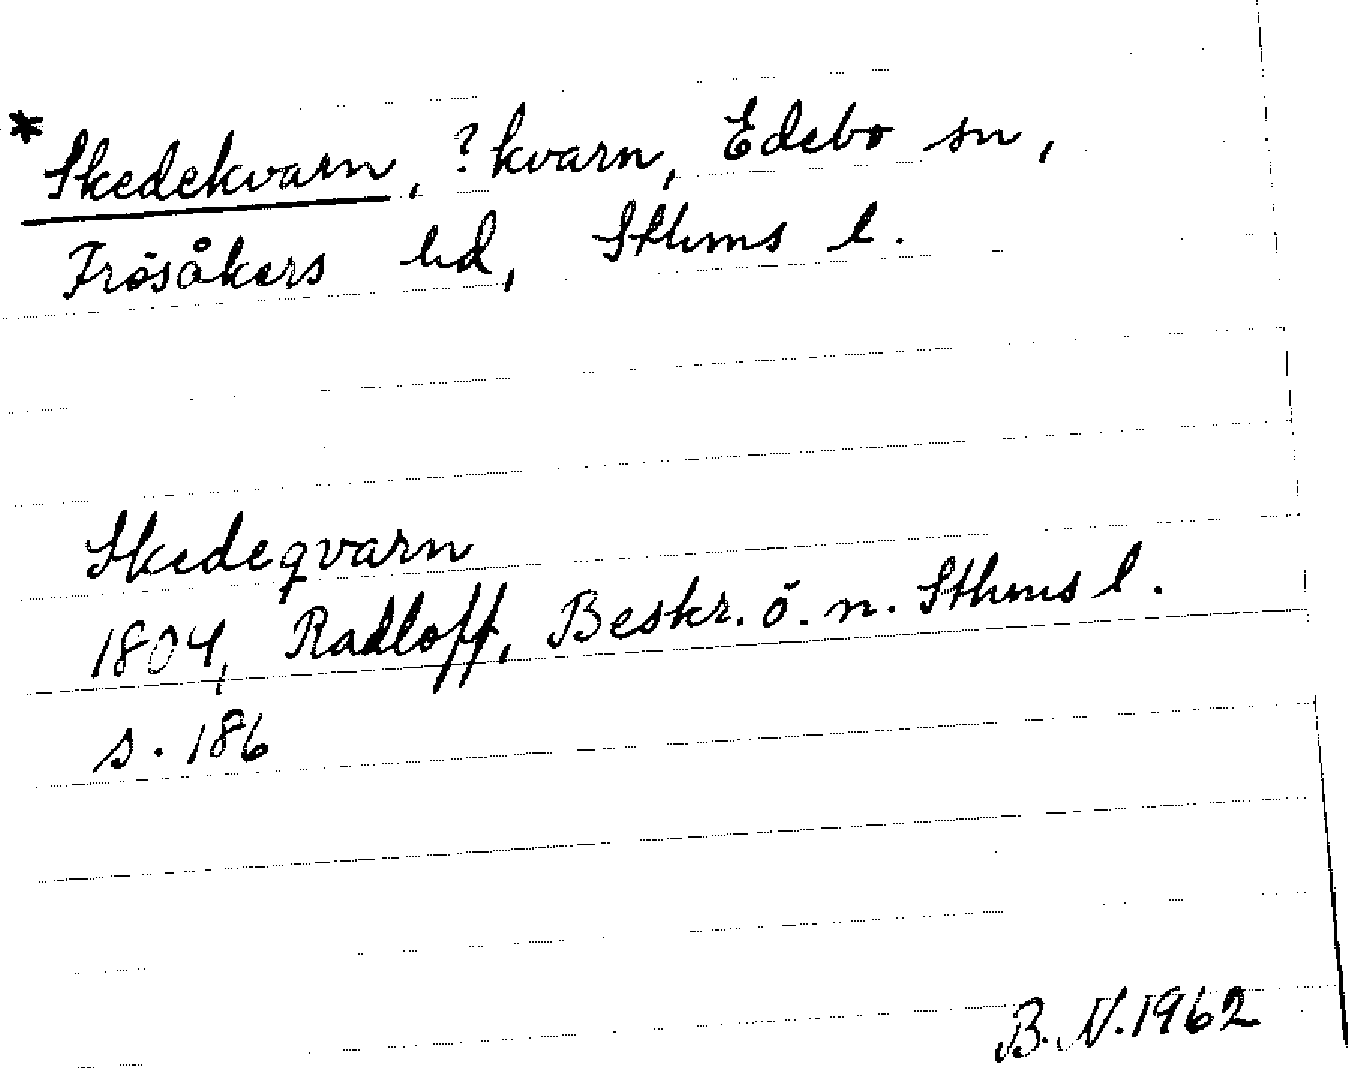 * Skedekvarn, ? kvarn, Edebo sn,
Frösåkers hd, Sthms l.
Skedeqvarn
1804, Radloff, Beskr. ö. n. Sthms l.
s. 186
B. N. 1962